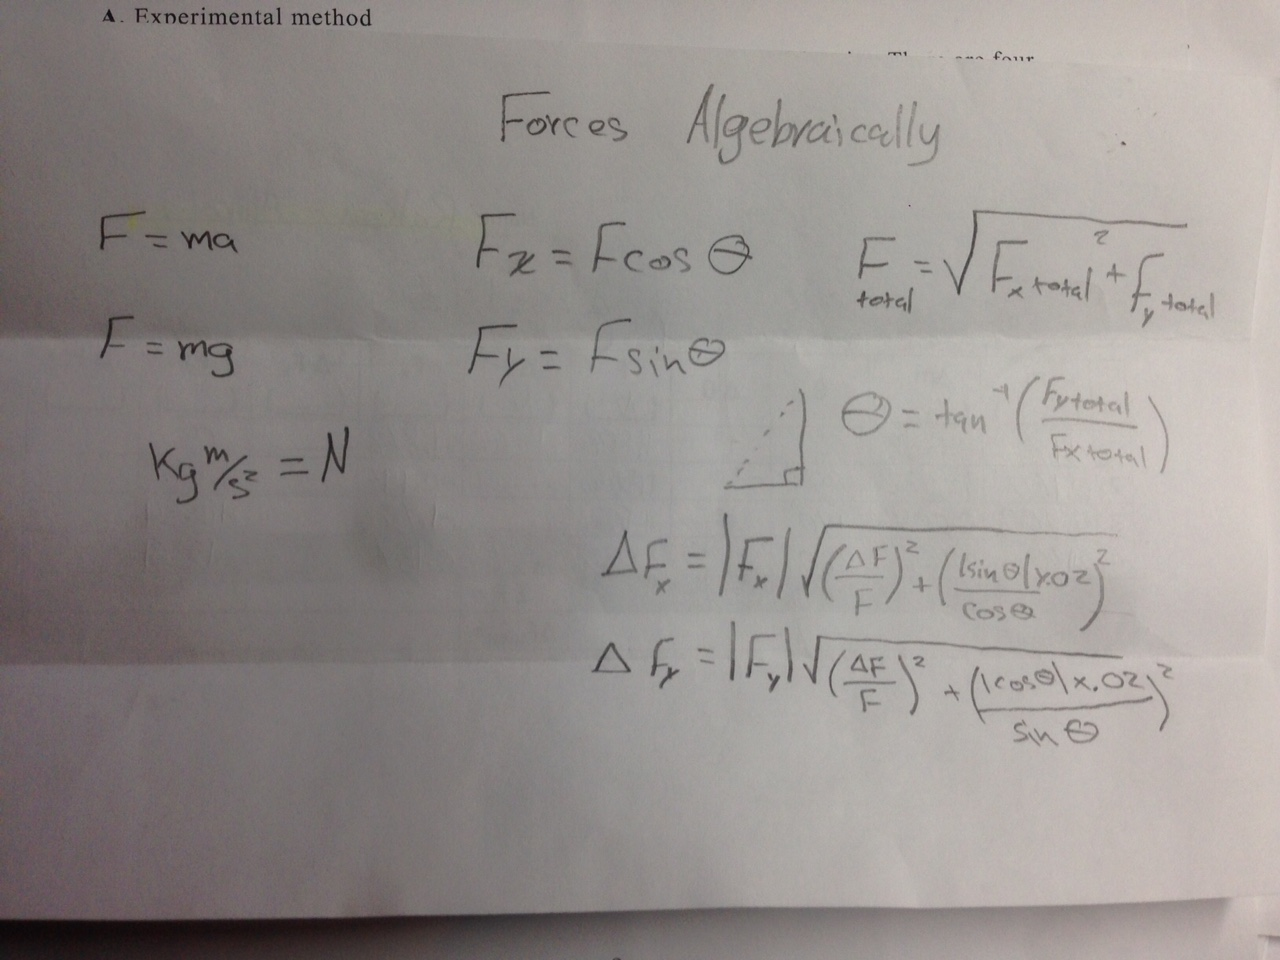 A. Experimental method
four
Forces Algebraically
F = ma
F = mg
Kg m/s² = N
Fx = Fcos θ
Fy = Fsin θ
F total = √(Fx total² + fy total²)
θ = tan⁻¹ (Fy total / Fx total)
ΔFx = |Fx| √((ΔF/F)² + (|sin θ| x .02 / cos θ)²)
Δ Fy = |Fy| √((ΔF/F)² + (|cos θ| x .02 / sin θ)²)